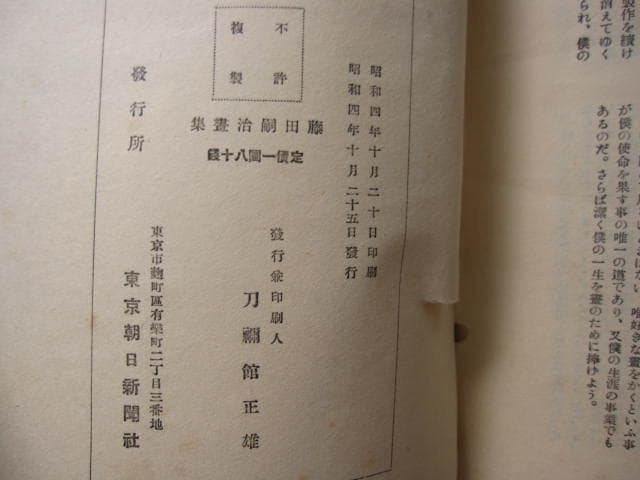 製作を續け
消えてゆく
られ、僕の
唯好きな畫をかくといふ事
が僕の使命を果す事の唯一の道であり、又僕の生涯の事業でも
あるのだ。さらば潔く僕の一生を畫のために捧げよう。
昭和四年十月二十日印刷
昭和四年十月二十五日發行
不許
複製
藤田嗣治畫集
定價一圓八十錢
發行兼印刷人
刀禰館正雄
發行所
東京市麹町區有樂町二丁目三番地
東京朝日新聞社